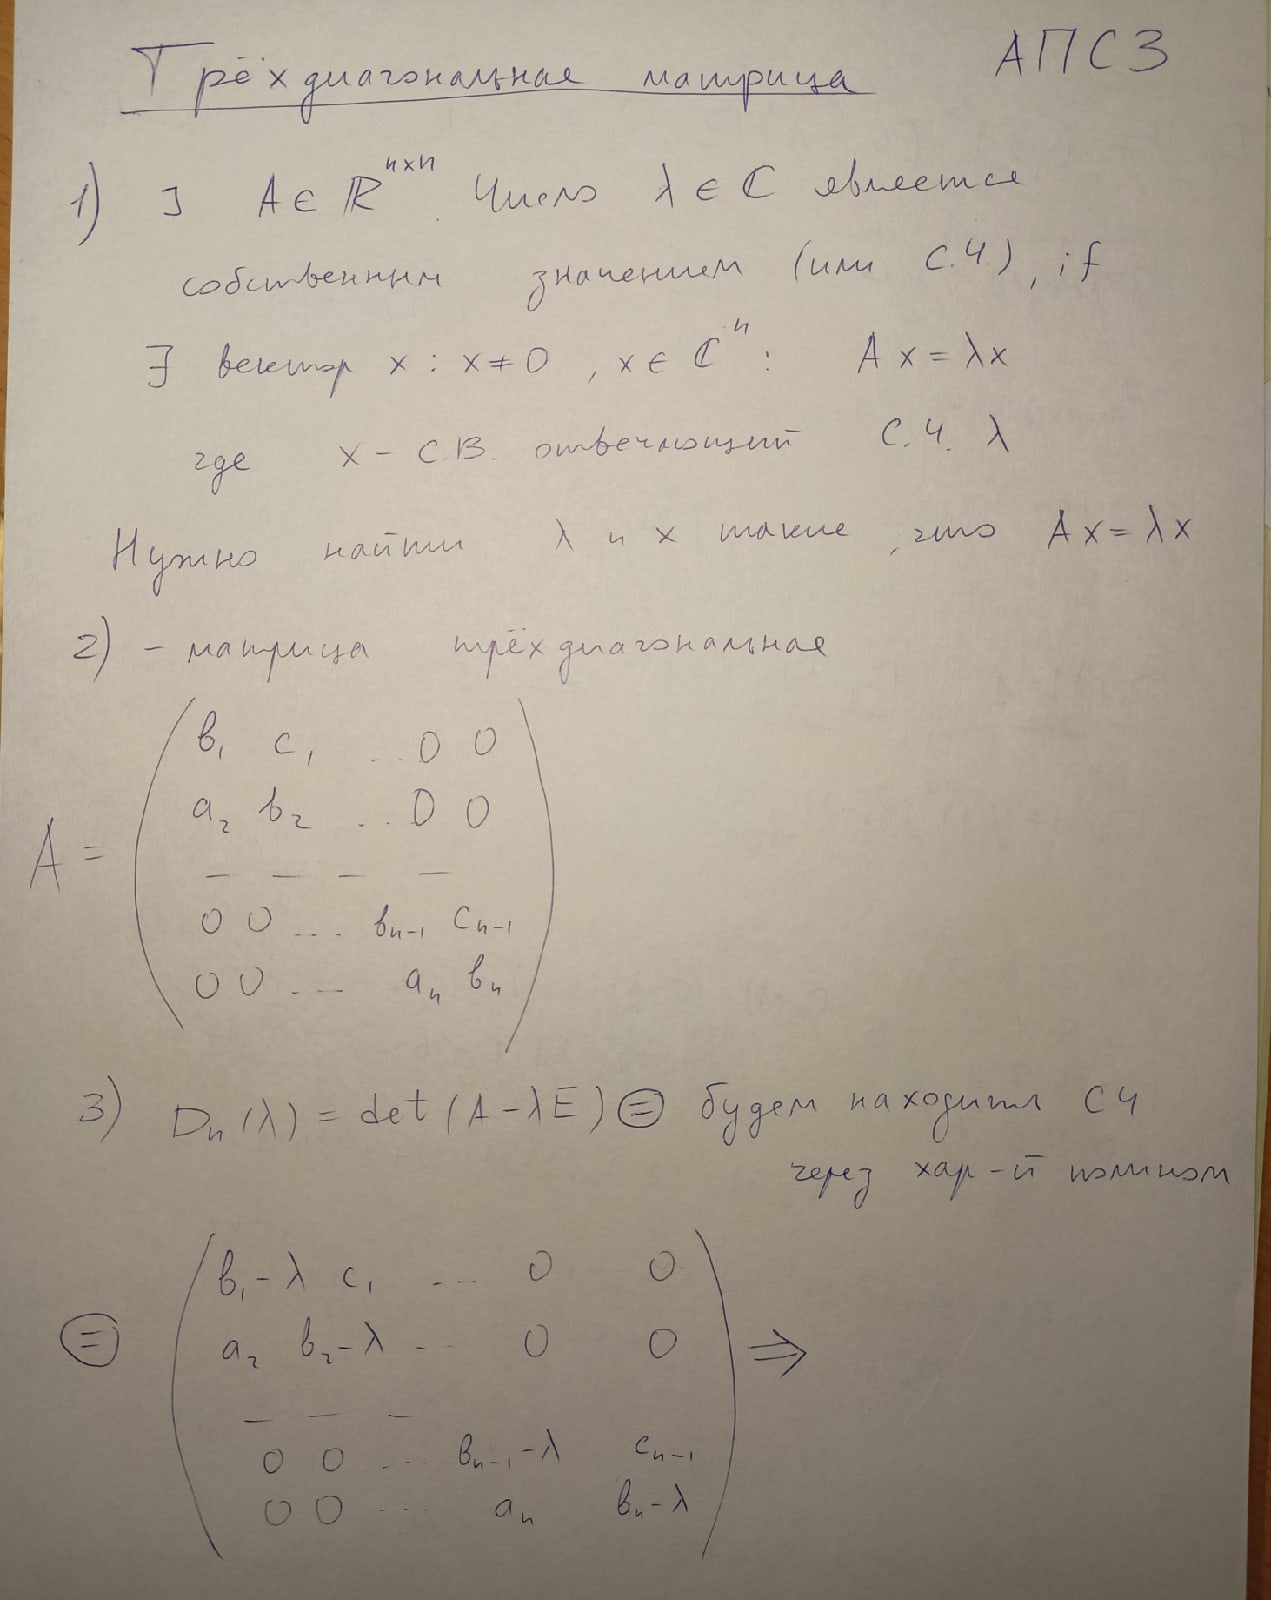 Трёхдиагональная матрица АПСЗ
1) ∃ A ∈ ℝⁿˣⁿ. Число λ ∈ ℂ является
собственным значением (или С.Ч.), if
∃ вектор x : x ≠ 0, x ∈ ℂⁿ : Ax = λx
где x – С.В. отвечающий С.Ч. λ
Нужно найти λ и x такие, что Ax = λx
2) – матрица трёхдиагональная
b₁ c₁ .. 0 0
a₂ b₂ ... 0 0
A =
— — — —
0 0 ... bₙ₋₁ cₙ₋₁
0 0 ... aₙ bₙ
3) Dₙ(λ) = det(A – λE) ⊜ будем находить СЧ
через хар-й полином
b₁-λ c₁ ... 0 0
⊜ a₂ b₂-λ ... 0 0 ⇒
— — —
0 0 ... bₙ₋₁-λ cₙ₋₁
0 0 ... aₙ bₙ-λ